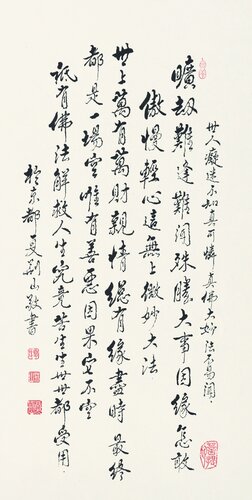 世人癡迷不知真可憐真佛大妙法不易聞
曠劫難逢難聞殊勝大事因緣怎敢
傲慢輕心這無上微妙大法
世上萬有萬財親情總有緣盡時最終
都是一場空唯有善惡因果它不空
祇有佛法解救人生究竟苦生生世世都受用
於京都艾荊山敬書